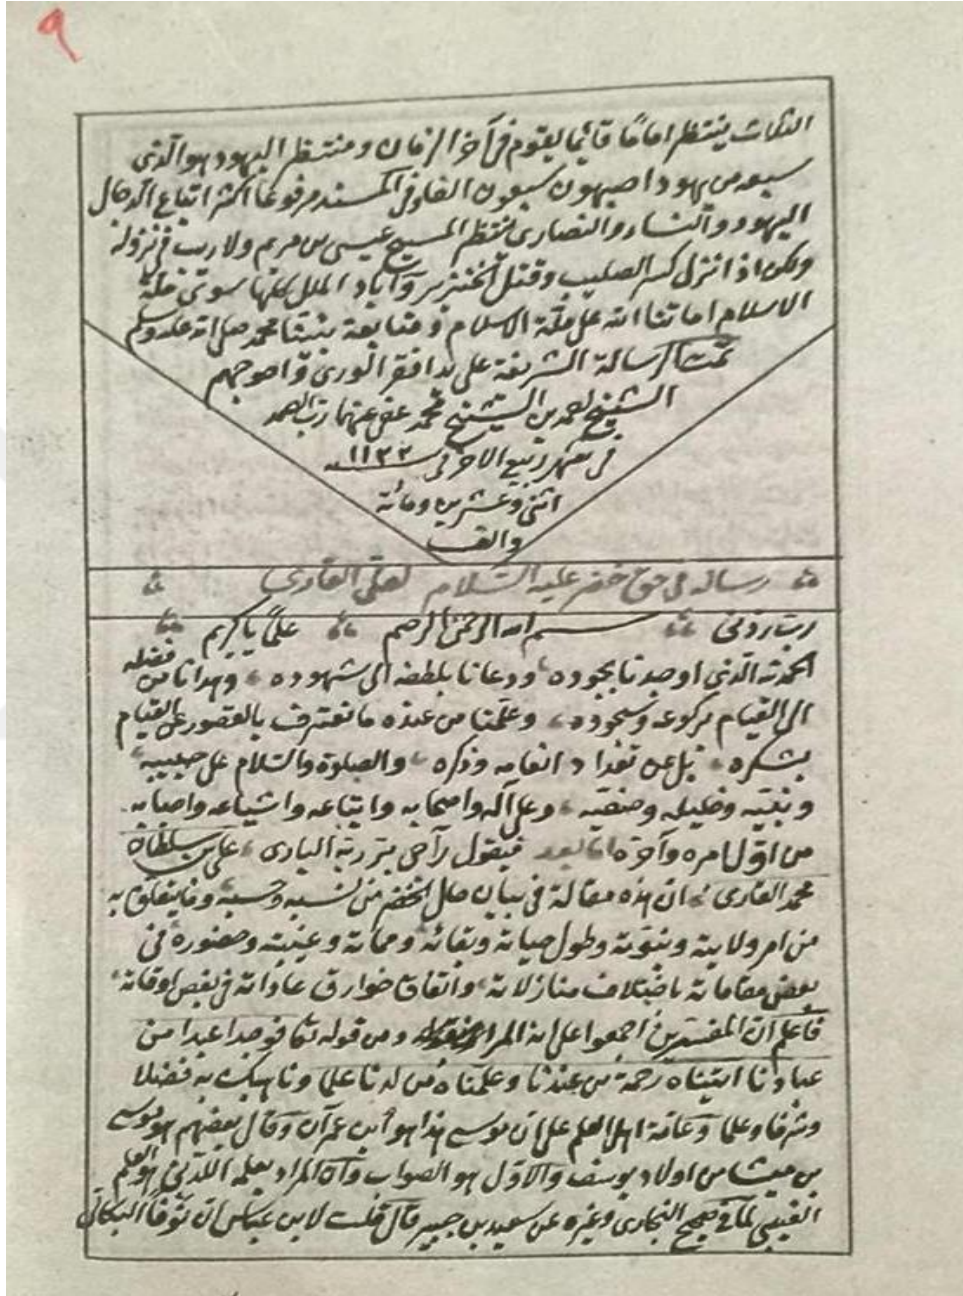 ٩
الثلاث ينتظر اماما قائما يقوم في آخر الزمان ومنتظر اليهود هو الذي
يتبعه من يهود اصبهان سبعون الفا وفي المسند مرفوعا اكثر اتباع الدجال
اليهود والنساء والنصارى تنتظر المسيح عيسى بن مريم ولا ريب في نزوله
ولكن اذا نزل كسر الصليب وقتل الخنزير واباد الملل كلها سوى ملة
الاسلام اماتنا الله على ملة الاسلام ومتابعة نبينا محمد صلى الله عليه وسلم
تمت الرسالة الشريفة على يد افقر الورى واحوجهم
الشيخ احمد بن الشيخ محمد عفى عنهما رب الصمد
في شهر ربيع الآخر في سنة ١١٢٢
اثنى وعشرين ومائة
والف
رساله في حق خضر عليه السلام لعلي القاري
رب زدني بسم الله الرحمن الرحيم علما يا كريم
الحمد لله الذي اوجدنا بجوده ودعانا بلطفه الى شهوده وهدانا من فضله
الى القيام بركوعه وسجوده وعلمنا من عنده ما نعترف بالقصور عن القيام
بشكره بل عن تعداد انعامه وذكره والصلوة والسلام على حبيبه
ونبيه وخليله وصفيه وعلى آله واصحابه واتباعه واشياعه واحبابه
من اول امره وآخره اما بعد فيقول راجى بر ربه البارى على بن سلطان
محمد القارى ان هذه مقالة في بيان حال الخضر من نسبه وحسبه وما يتعلق به
من امر ولايته ونبوته وطول حياته وبقائه ومماته وغيبته وحضوره في
بعض مقاماته باختلاف منازلاته واتفاق خوارق عاداته في بعض اوقاته
فاعلم ان المفسرين اجمعوا على انه المراد من قوله تعا فوجدا عبدا من
عبادنا اتيناه رحمة من عندنا وعلمناه من لدنا علما وناهيك به فضلا
وشرفا وعلما وعامة اهل العلم على ان موسى هذا هو ابن عمران وقال بعضهم هو موسى
بن ميشا من اولاد يوسف والاول هو الصواب وان المراد بعلمه اللدني هو العلم
الغيبي لما في صحيح البخارى وغيره عن سعيد بن جبير قال قلت لابن عباس ان نوفا البكالى